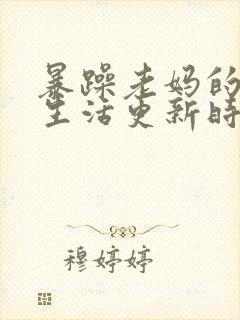 暴躁老妈的
生活更新时
穆婷婷